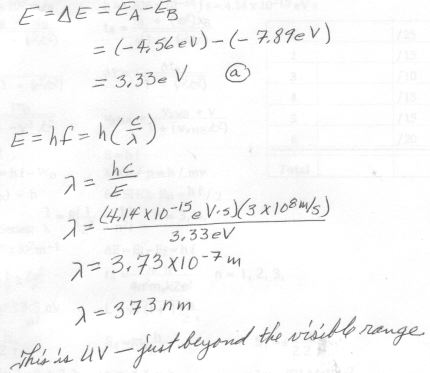 E = ΔE = E_A - E_B
= (-4.56 eV) - (- 7.89 eV)
= 3.33 eV  (a)
E = hf = h(c/λ)
λ = hc/E
λ = (4.14 x 10^-15 eV·s)(3 x 10^8 m/s) / 3.33 eV
λ = 3.73 x 10^-7 m
λ = 373 nm
This is UV — just beyond the visible range